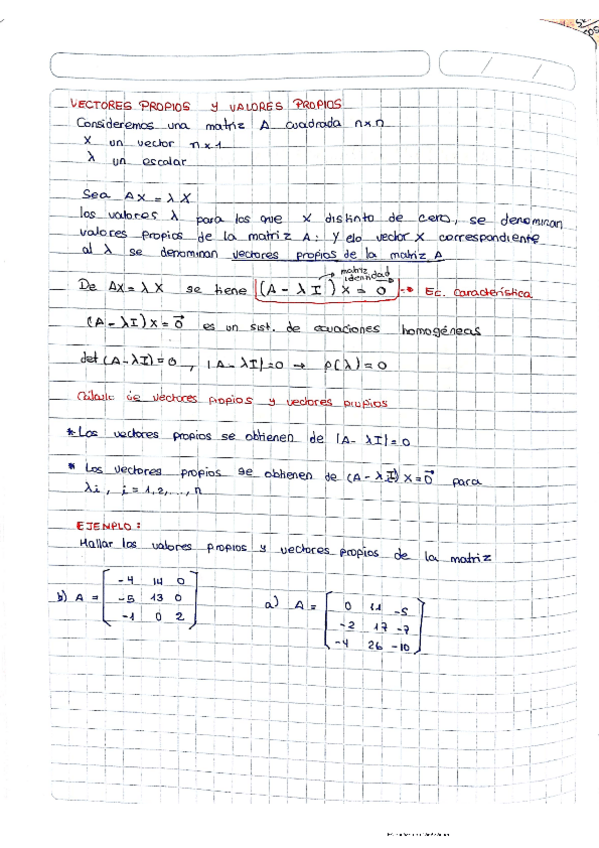 VECTORES PROPIOS Y VALORES PROPIOS
Consideremos una matriz A cuadrada nxn
X un vector nx1
λ un escalar
Sea AX = λX
los valores λ para los que X distinto de cero, se denominan
valores propios de la matriz A: y elo vector X correspondiente
al λ se denominan vectores propios de la matriz A
matriz identidad
De AX = λX se tiene (A - λI)X = 0⃗ → Ec. Característica
(A - λI)X = 0⃗ es un sist. de ecuaciones homogéneas
det (A - λI) = 0 , |A - λI| = 0 → P(λ) = 0
Cálculo de vectores propios y vectores propios
* Los vectores propios se obtienen de |A - λI| = 0
* Los vectores propios se obtienen de (A - λI)X = 0⃗ para
λi , i = 1,2,...,n
EJEMPLO:
Hallar los valores propios y vectores propios de la matriz
b) A = [-4 14 0
-5 13 0
-1 0 2]
a) A = [0 11 -5
-2 17 -7
-4 26 -10]